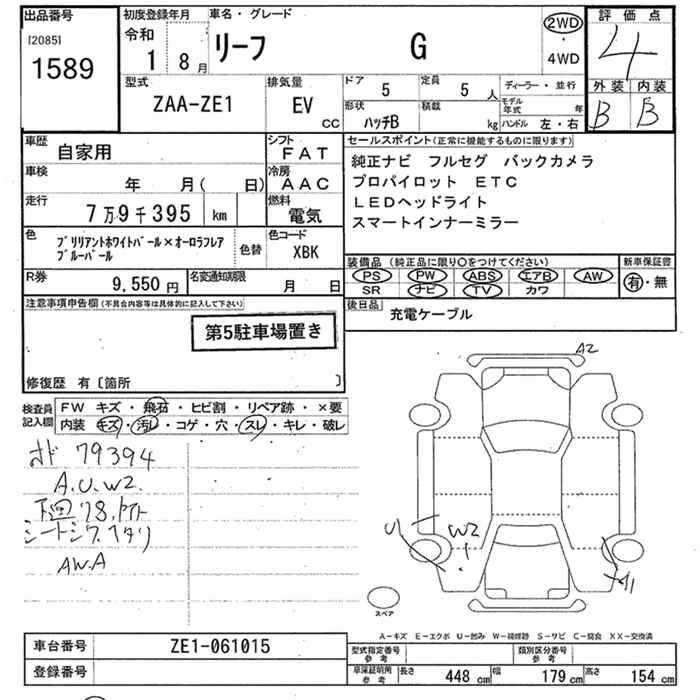 出品番号 初度登録年月 車名・グレード 2WD 評価点
[2085]
1589
令和
1 8月
リーフ G
・
4WD
4
外装 内装
B B
型式 排気量 ドア 定員 ディーラー・並行
ZAA-ZE1 EV CC 5 5人
形状 積載 モデル年式 年
ハッチB kg ハンドル 左・右
車歴 自家用 シフト FAT
車検 年 月( 日) 冷房 AAC
走行 7万9千395 km 燃料 電気
セールスポイント(正常に機能するものに限ります)
純正ナビ フルセグ バックカメラ
プロパイロット ETC
LEDヘッドライト
スマートインナーミラー
色 ブリリアントホワイトパール×オーロラフレア
ブルーパール
色替 色コード XBK
R券 9,550円 名変通知期限 月 日
装備品(純正品に限り○をつけてください) 新車保証書
PS PW ABS エアB AW
SR ナビ TV カワ
有・無
後日品 充電ケーブル
注意事項申告欄(不具合内容等は具体的に記入して下さい)
第5駐車場置き
修復歴 有〔箇所 〕
検査員記入欄
FW キズ・飛石・ヒビ割・リペア跡・×要
内装 キズ・汚レ・コゲ・穴・スレ・キレ・破レ
79394
A.U.W2.
下廻サビ.
シートシワ.ヘタリ
AW.A
A2
U
W2
A1
スペア
A-キズ E-エクボ U-凹み W-補修跡 S-サビ C-腐食 XX-交換済
車台番号 ZE1-061015
登録番号
型式指定番号 参考 類別区分番号 参考
車庫証明用 参考 長さ 448cm 幅 179cm 高さ 154cm